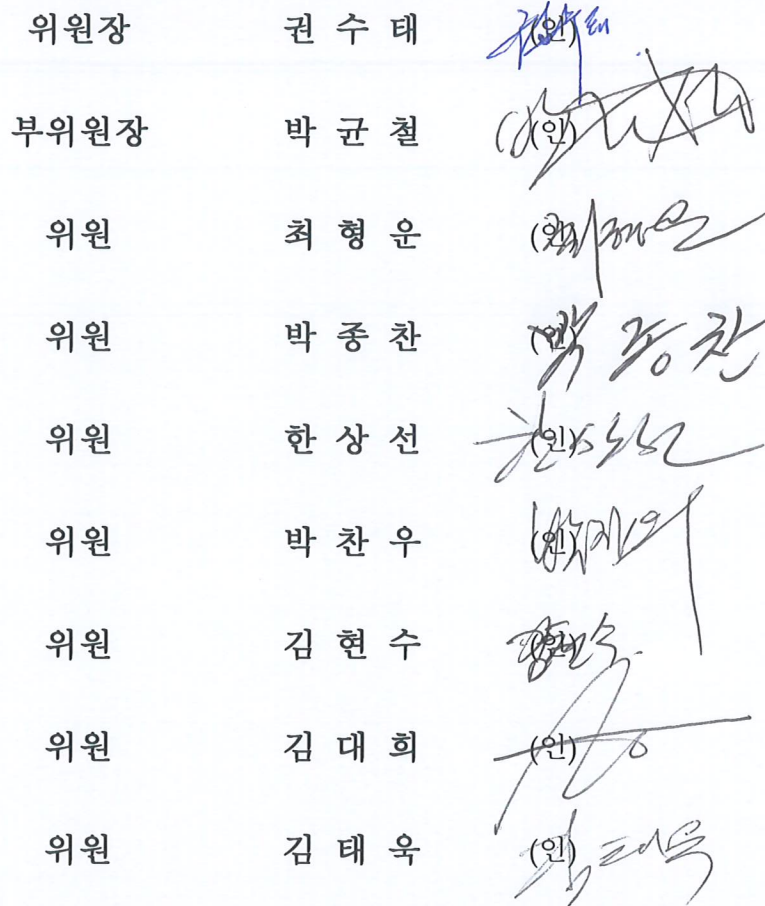 위원장 권 수 태 (인)
부위원장 박 균 철 (인)
위원 최 형 운 (인)
위원 박 종 찬 (인) 박종찬
위원 한 상 선 (인)
위원 박 찬 우 (인)
위원 김 현 수 (인)
위원 김 대 희 (인)
위원 김 태 욱 (인) 김태욱